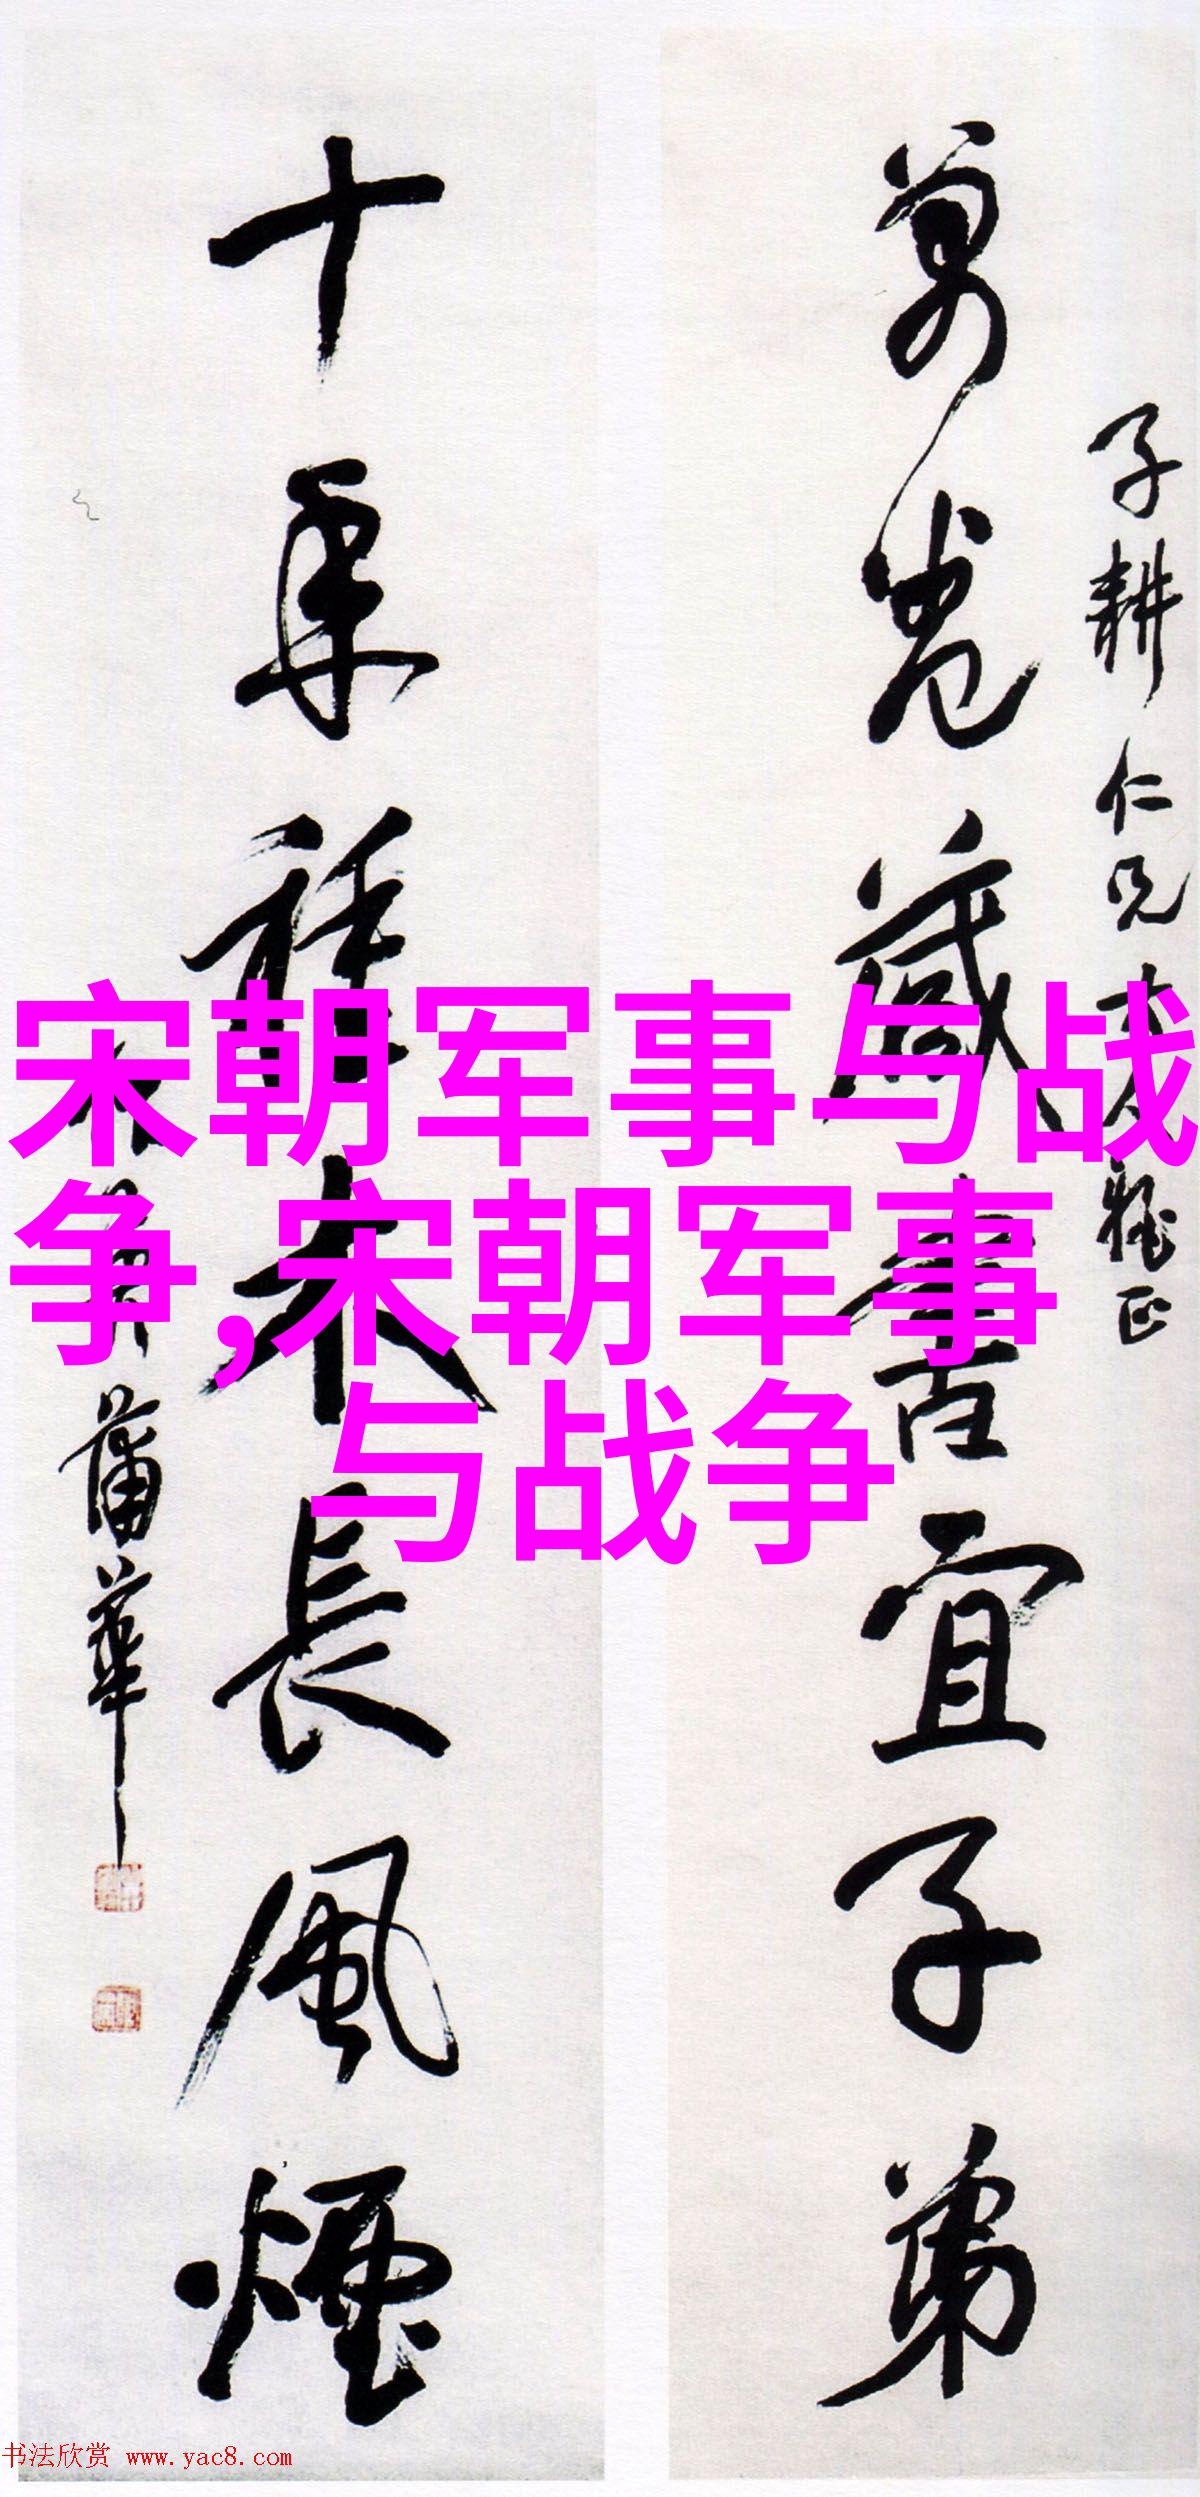 子耕仁兄大人雅正
萬卷藏書宜子弟
十年種木長風煙
蒲華
宋朝军事与战
争,宋朝军事
与战争
书法欣赏 www.yac8.com